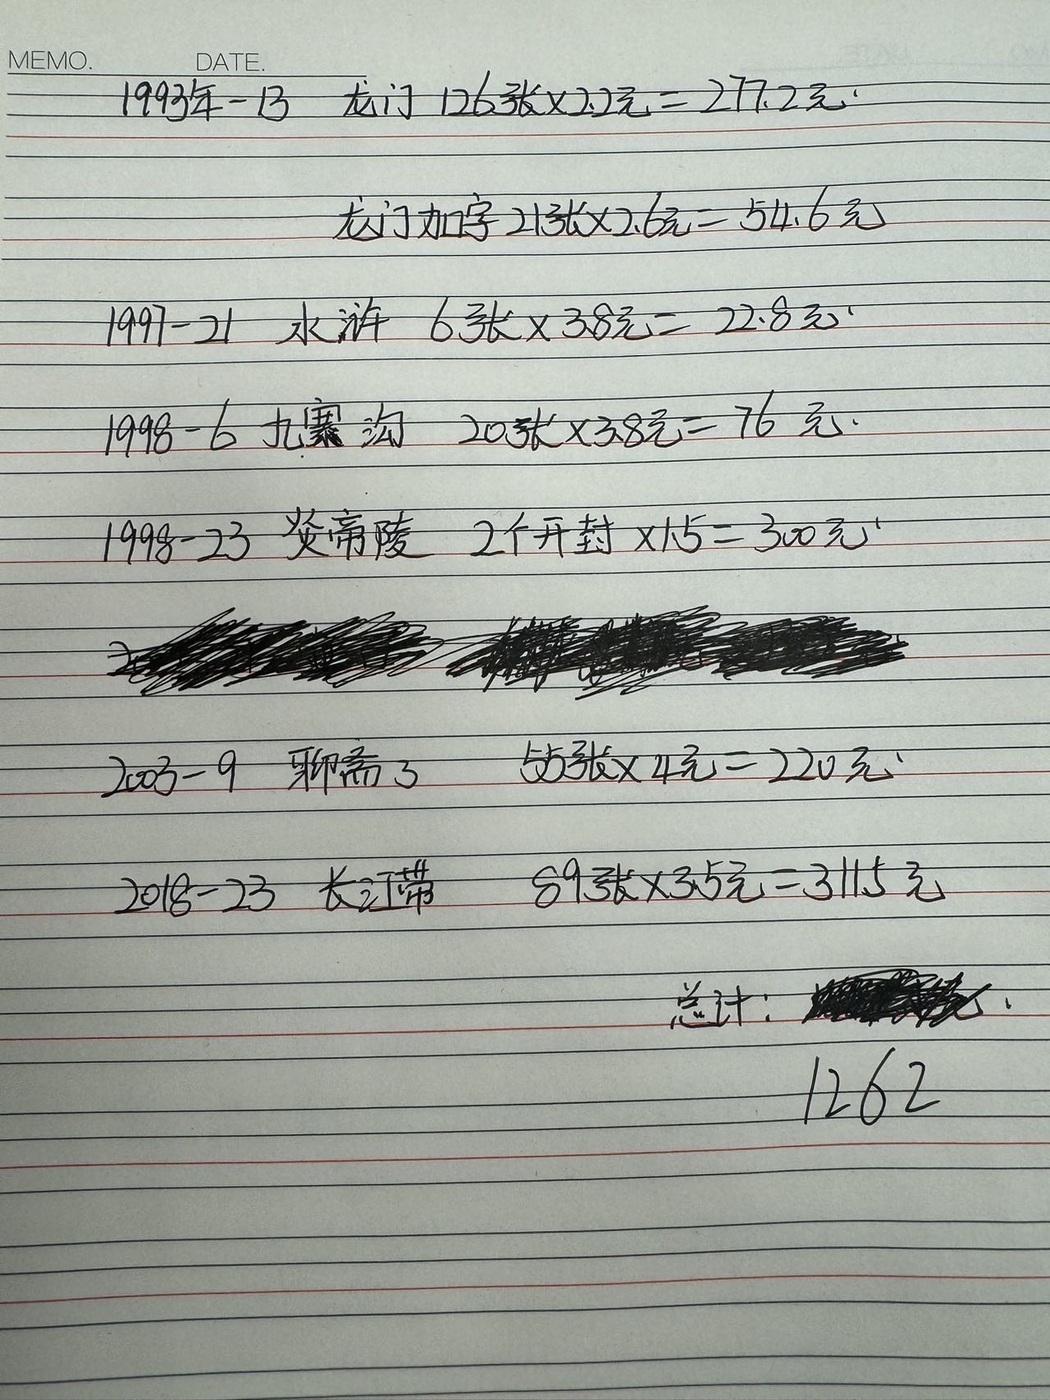 MEMO. DATE.
1993年-13 龙门 126张×2.2元=277.2元.
龙门加字 21张×2.6元=54.6元
1997-21 水浒 6张×3.8元=22.8元.
1998-6 九寨沟 20张×3.8元=76元.
1998-23 炎帝陵 2个开封×1.5=300元.
2003-9 聊斋3 55张×4元=220元.
2018-23 长江带 89张×3.5元=311.5元
总计:
1262